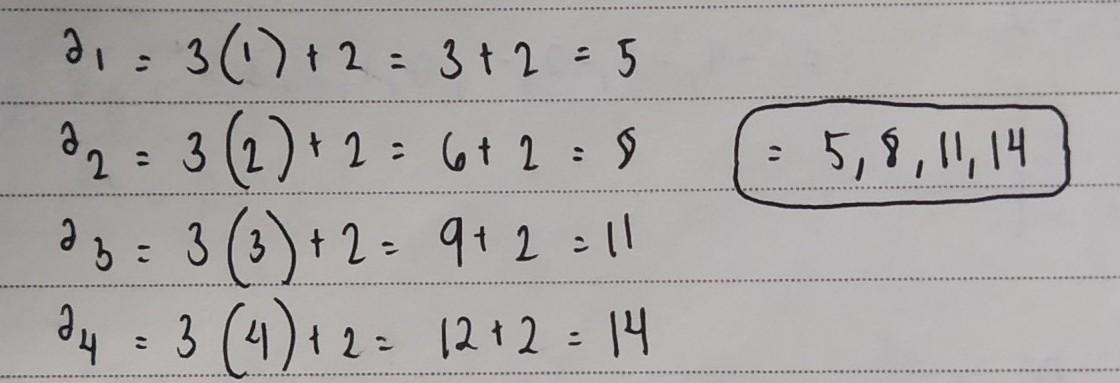 a₁ = 3(1) + 2 = 3 + 2 = 5
a₂ = 3(2) + 2 = 6 + 2 = 8
= 5, 8, 11, 14
a₃ = 3(3) + 2 = 9 + 2 = 11
a₄ = 3(4) + 2 = 12 + 2 = 14